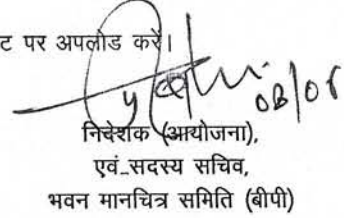 ट पर अपलोड करें।
08/06
निदेशक (आयोजना),
एवं सदस्य सचिव,
भवन मानचित्र समिति (बीपी)